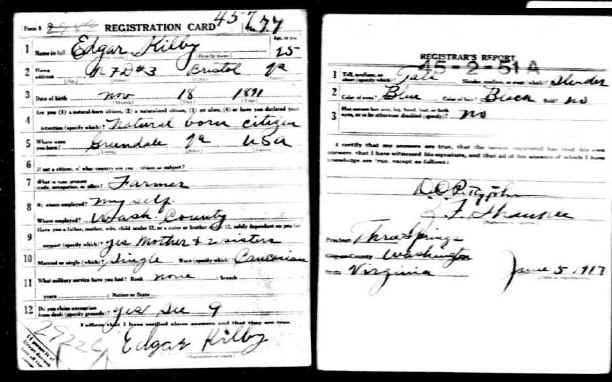 REGISTRATION CARD 457 No. 77
1 Name in full Edgar Kilby Age, in yrs. 25
2 Home address R F D #3 Bristol Va
3 Date of birth Nov 18 1891
4 Are you (1) a natural-born citizen, (2) a naturalized citizen, (3) an alien, (4) or have you declared your
intention (specify which)? Natural born citizen
5 Where were you born? Greendale Va USA
6 If not a citizen, of what country are you a citizen or subject?
7 What is your present trade, occupation, or office? Farmer
8 By whom employed? my self
Where employed? Wash County
9 Have you a father, mother, wife, child under 12, or a sister or brother under 12, solely dependent on you for
support (specify which)? yes Mother & sisters
10 Married or single (which)? Single Race (specify which)? Caucasian
11 What military service have you had? Rank none branch
years Nation or State
12 Do you claim exemption from draft (specify grounds)? yes See 9
I affirm that I have verified above answers and that they are true.
Edgar Kilby
REGISTRAR'S REPORT
45-2-51 A
1 Tall, medium, or short (specify which)? Tall Slender, medium, or stout (which)? Slender
2 Color of eyes? Blue Color of hair? Black Bald? no
3 Has person lost arm, leg, hand, foot, or both eyes, or is he otherwise disabled (specify)? no
I certify that my answers are true, that the person registered has read his own
answers, that I have witnessed his signature, and that all of the answers of which I have
knowledge are true, except as follows:
Precinct Three Springs
County Washington
State Virginia June 5, 1917